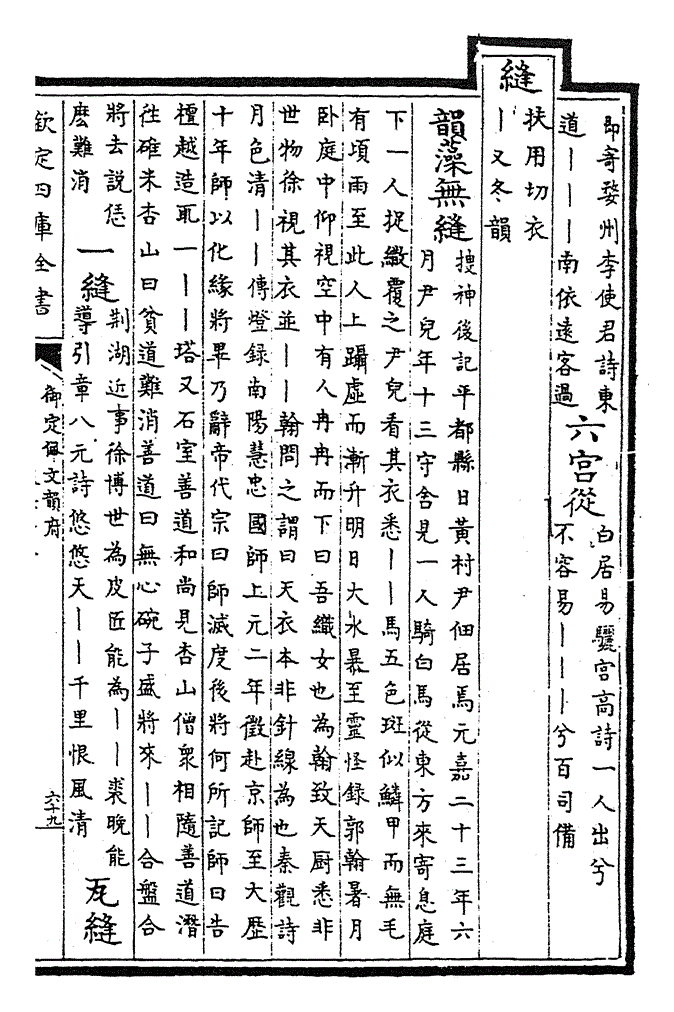 即寄婺州李使君詩東
道丨丨丨南依遠客過
六宮從
白居易驪宮高詩一人出兮
不容易丨丨丨兮百司備
縫
扶用切衣
丨又冬韻
韻藻無縫
搜神後記平都縣日黃村尹佃居焉元嘉二十三年六
月尹兒年十三守舍見一人騎白馬從東方來寄息庭
下一人捉繖覆之尹兒看其衣悉丨丨馬五色斑似鱗甲而無毛
有頃雨至此人上躡虛而漸升明日大水暴至靈怪錄郭翰暑月
卧庭中仰視空中有人冉冉而下曰吾織女也為翰致天厨悉非
世物徐視其衣並丨丨翰問之謂曰天衣本非針線為也秦觀詩
月色清丨丨傳燈録南陽慧忠國師上元二年徵赴京師至大歴
十年師以化緣將畢乃辭帝代宗曰師滅度後將何所記師曰告
檀越造取一丨丨塔又石室善道和尚見杏山僧衆相隨善道潛
往碓米杏山曰貧道難消善道曰無心碗子盛將來丨丨合盤合
將去説恁
麽難消
一縫
荆湖近事徐博世為皮匠能為丨丨裘晚能
導引章八元詩悠悠天丨丨千里恨風清
瓦縫
欽定四庫全書
御定佩文韻府
六十九